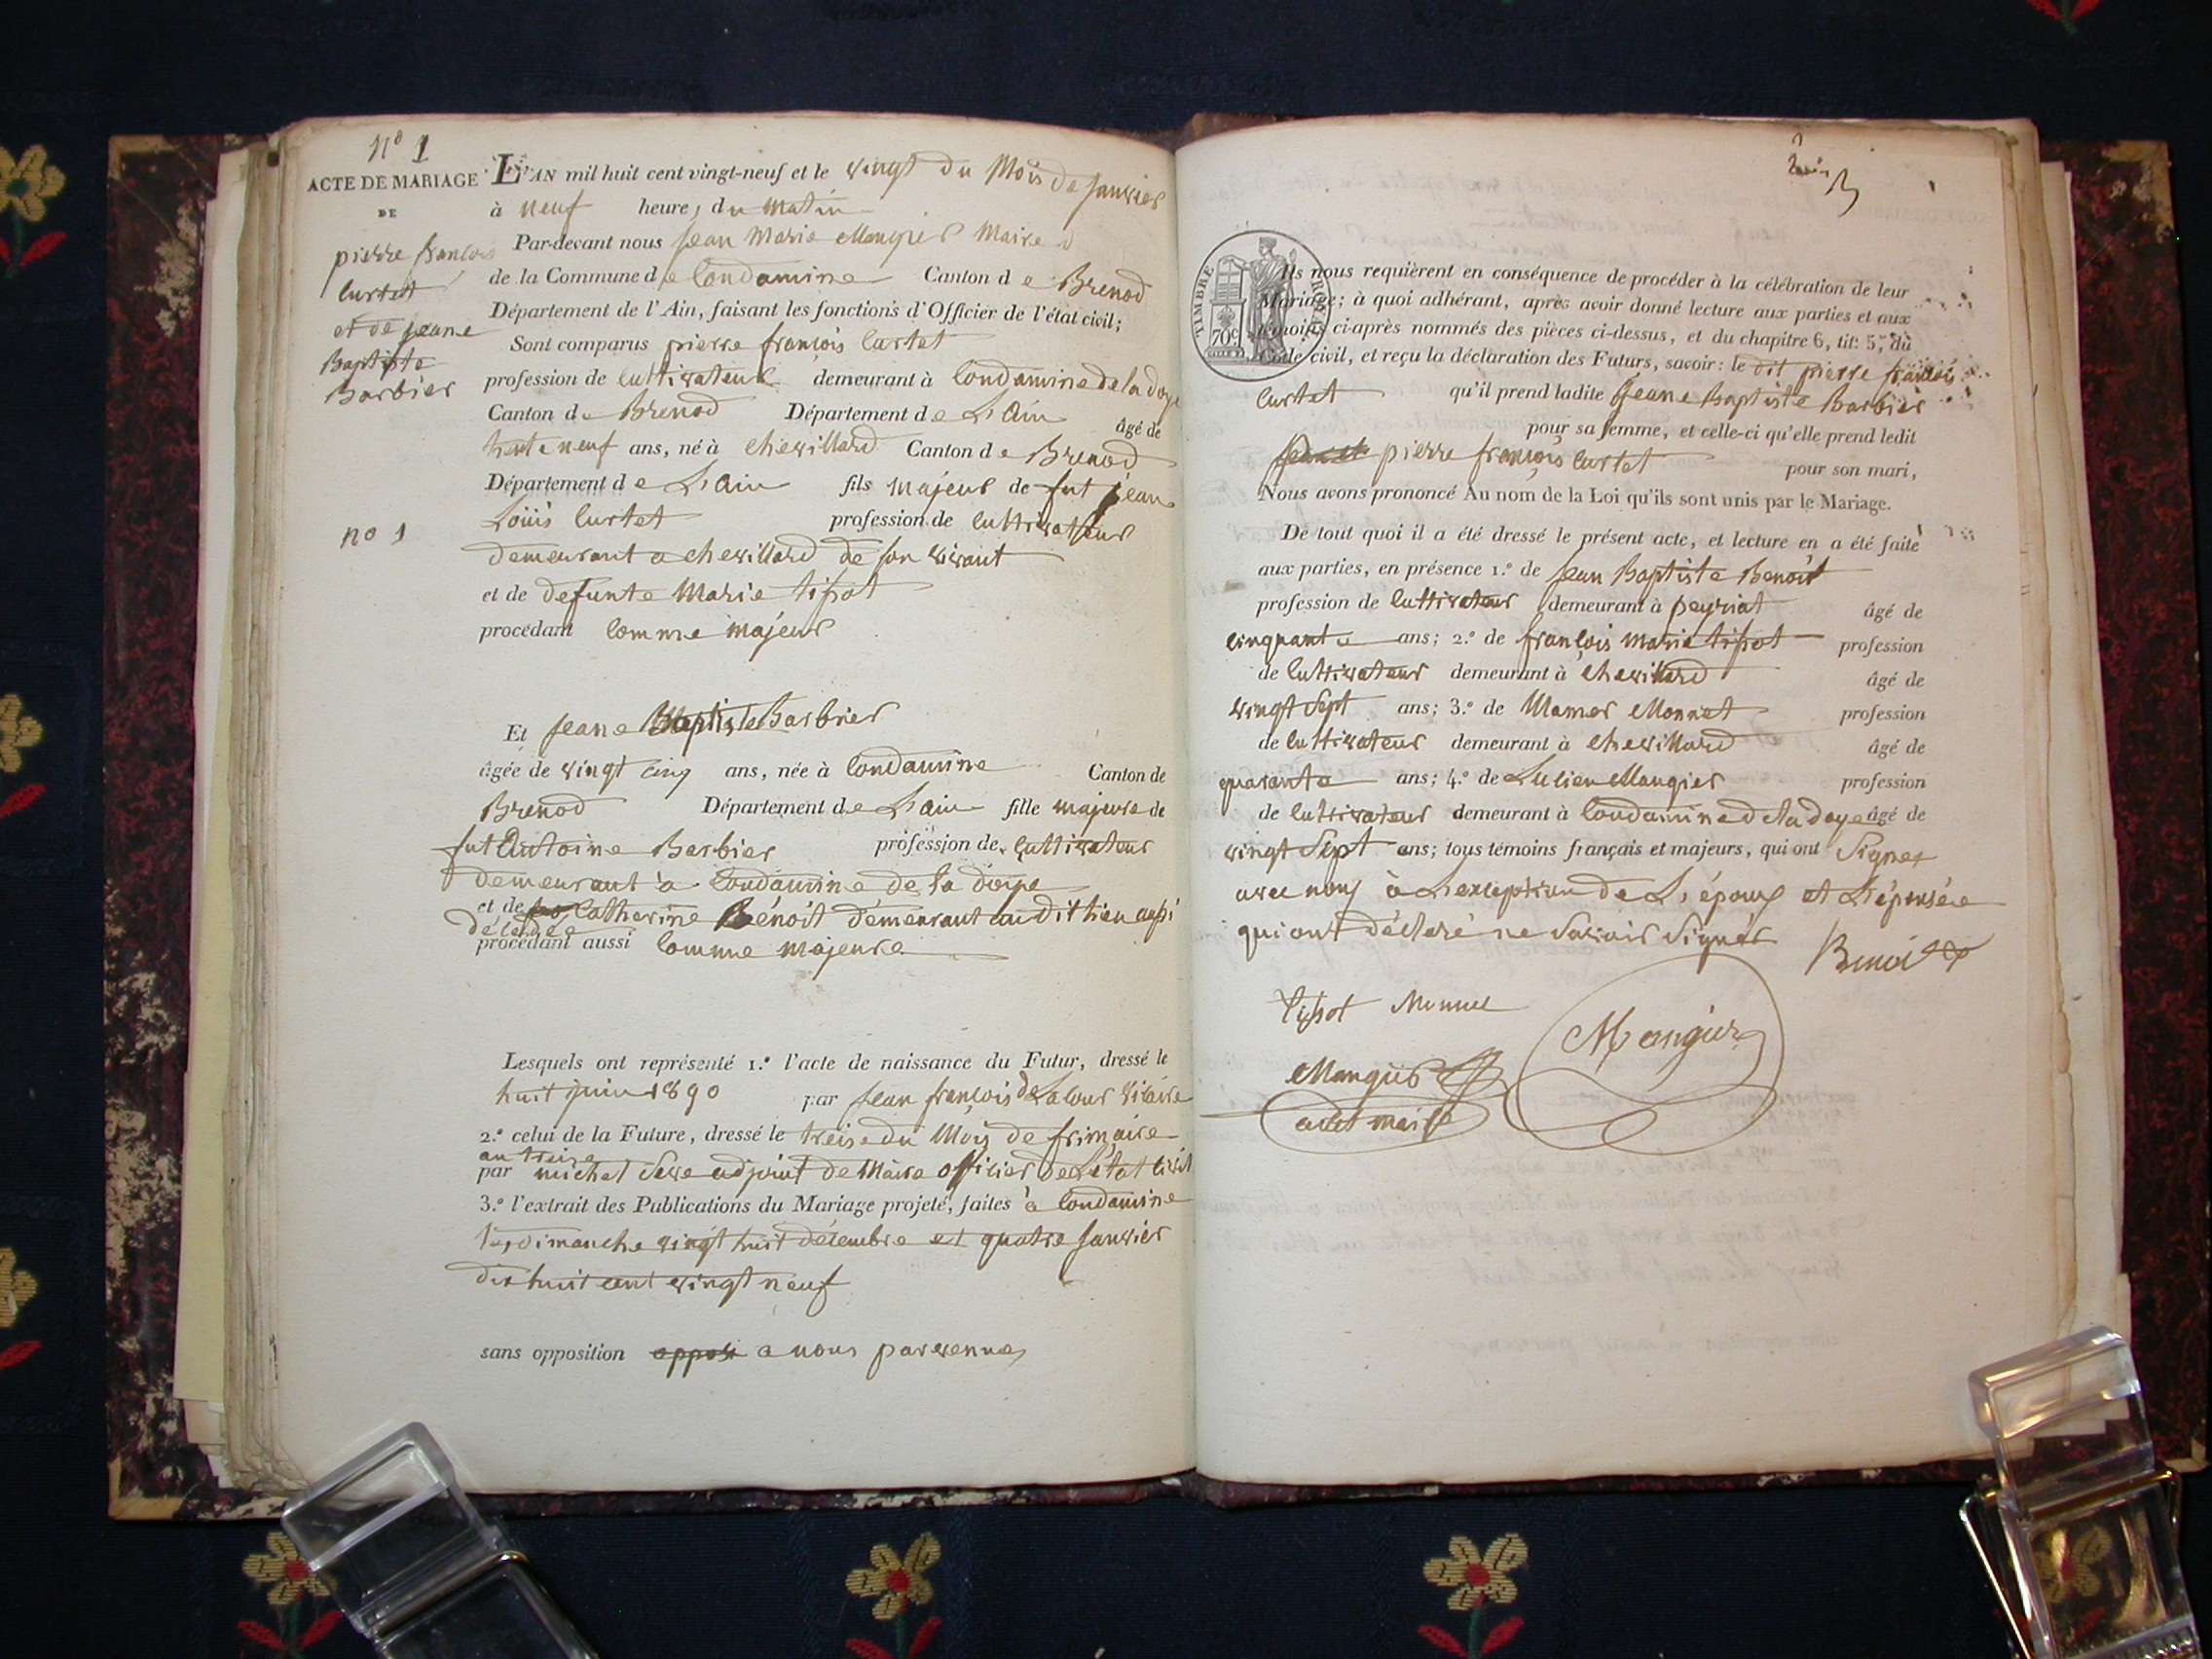 N° 1
ACTE DE MARIAGE
DE
pierre françois
Curtet
et de jeane
Baptiste
Barbier
no 1
L'AN mil huit cent vingt-neuf et le vingt du Mois de Janvier
à neuf heures du Matin
Par-devant nous Jean Marie Mangier Maire
de la Commune de Condamine Canton de Brenod
Département de l'Ain, faisant les fonctions d'Officier de l'état civil;
Sont comparus pierre françois Curtet
profession de Cultivateur demeurant à Condamine de la doye
Canton de Brenod Département de L'Ain âgé de
trente neuf ans, né à chevillard Canton de Brenod
Département de L'Ain fils majeur de fut jean
Loüis Curtet profession de Cultivatteur
demeurant a chevillard de son vivant
et de defunte Marie tisot
procédant Comme majeur
Et jeane Baptiste Barbier
âgée de vingt cinq ans, née à Condamine Canton de
Brenod Département de L'ain fille majeure de
fut Antoine Barbier profession de Cultivateur
demeurant à Condamine de la doye
et de Catherine Bénoit demeurant audit lieu aussi
décédée
procédant aussi Comme majeure
Lesquels ont représenté 1.° l'acte de naissance du Futur, dressé le
huit juin 1890 par jean françois de Lacour vicaire
2.° celui de la Future, dressé le treise du Mois de frimaire
an treise
par michel Serre adjoint de Maire officier de L'état civil
3.° l'extrait des Publications du Mariage projeté, faites à Condamine
Les dimanche vingt huit décembre et quatre janvier
dix huit cent vingt neuf
sans opposition a nous parvenue
TIMBRE ROYAL
70c
Ils nous requièrent en conséquence de procéder à la célébration de leur
Mariage; à quoi adhérant, après avoir donné lecture aux parties et aux
témoins ci-après nommés des pièces ci-dessus, et du chapitre 6, tit: 5, du
Code civil, et reçu la déclaration des Futurs, savoir: le dit pierre françois
Curtet qu'il prend ladite jeane Baptiste Barbier
pour sa femme, et celle-ci qu'elle prend ledit
pierre françois Curtet pour son mari,
Nous avons prononcé Au nom de la Loi qu'ils sont unis par le Mariage.
De tout quoi il a été dressé le présent acte, et lecture en a été faite
aux parties, en présence 1.° de jean Baptiste Benoit
profession de Cultivateur demeurant à peyriat âgé de
cinquante ans; 2.° de françois marie tisot profession
de Cultivateur demeurant à chevillard âgé de
vingt Sept ans; 3.° de Mamer Monnet profession
de Cultivateur demeurant à chevillard âgé de
quarante ans; 4.° de Lucien Mangier profession
de Cultivateur demeurant à Condamine de la doye âgé de
vingt Sept ans; tous témoins français et majeurs, qui ont Signer
avec nous à L'exception de L'époux et L'épousée
qui ont déclaré ne Savoir Signer
Benoit
tissot Monnet
Mangier
Mangier
maire